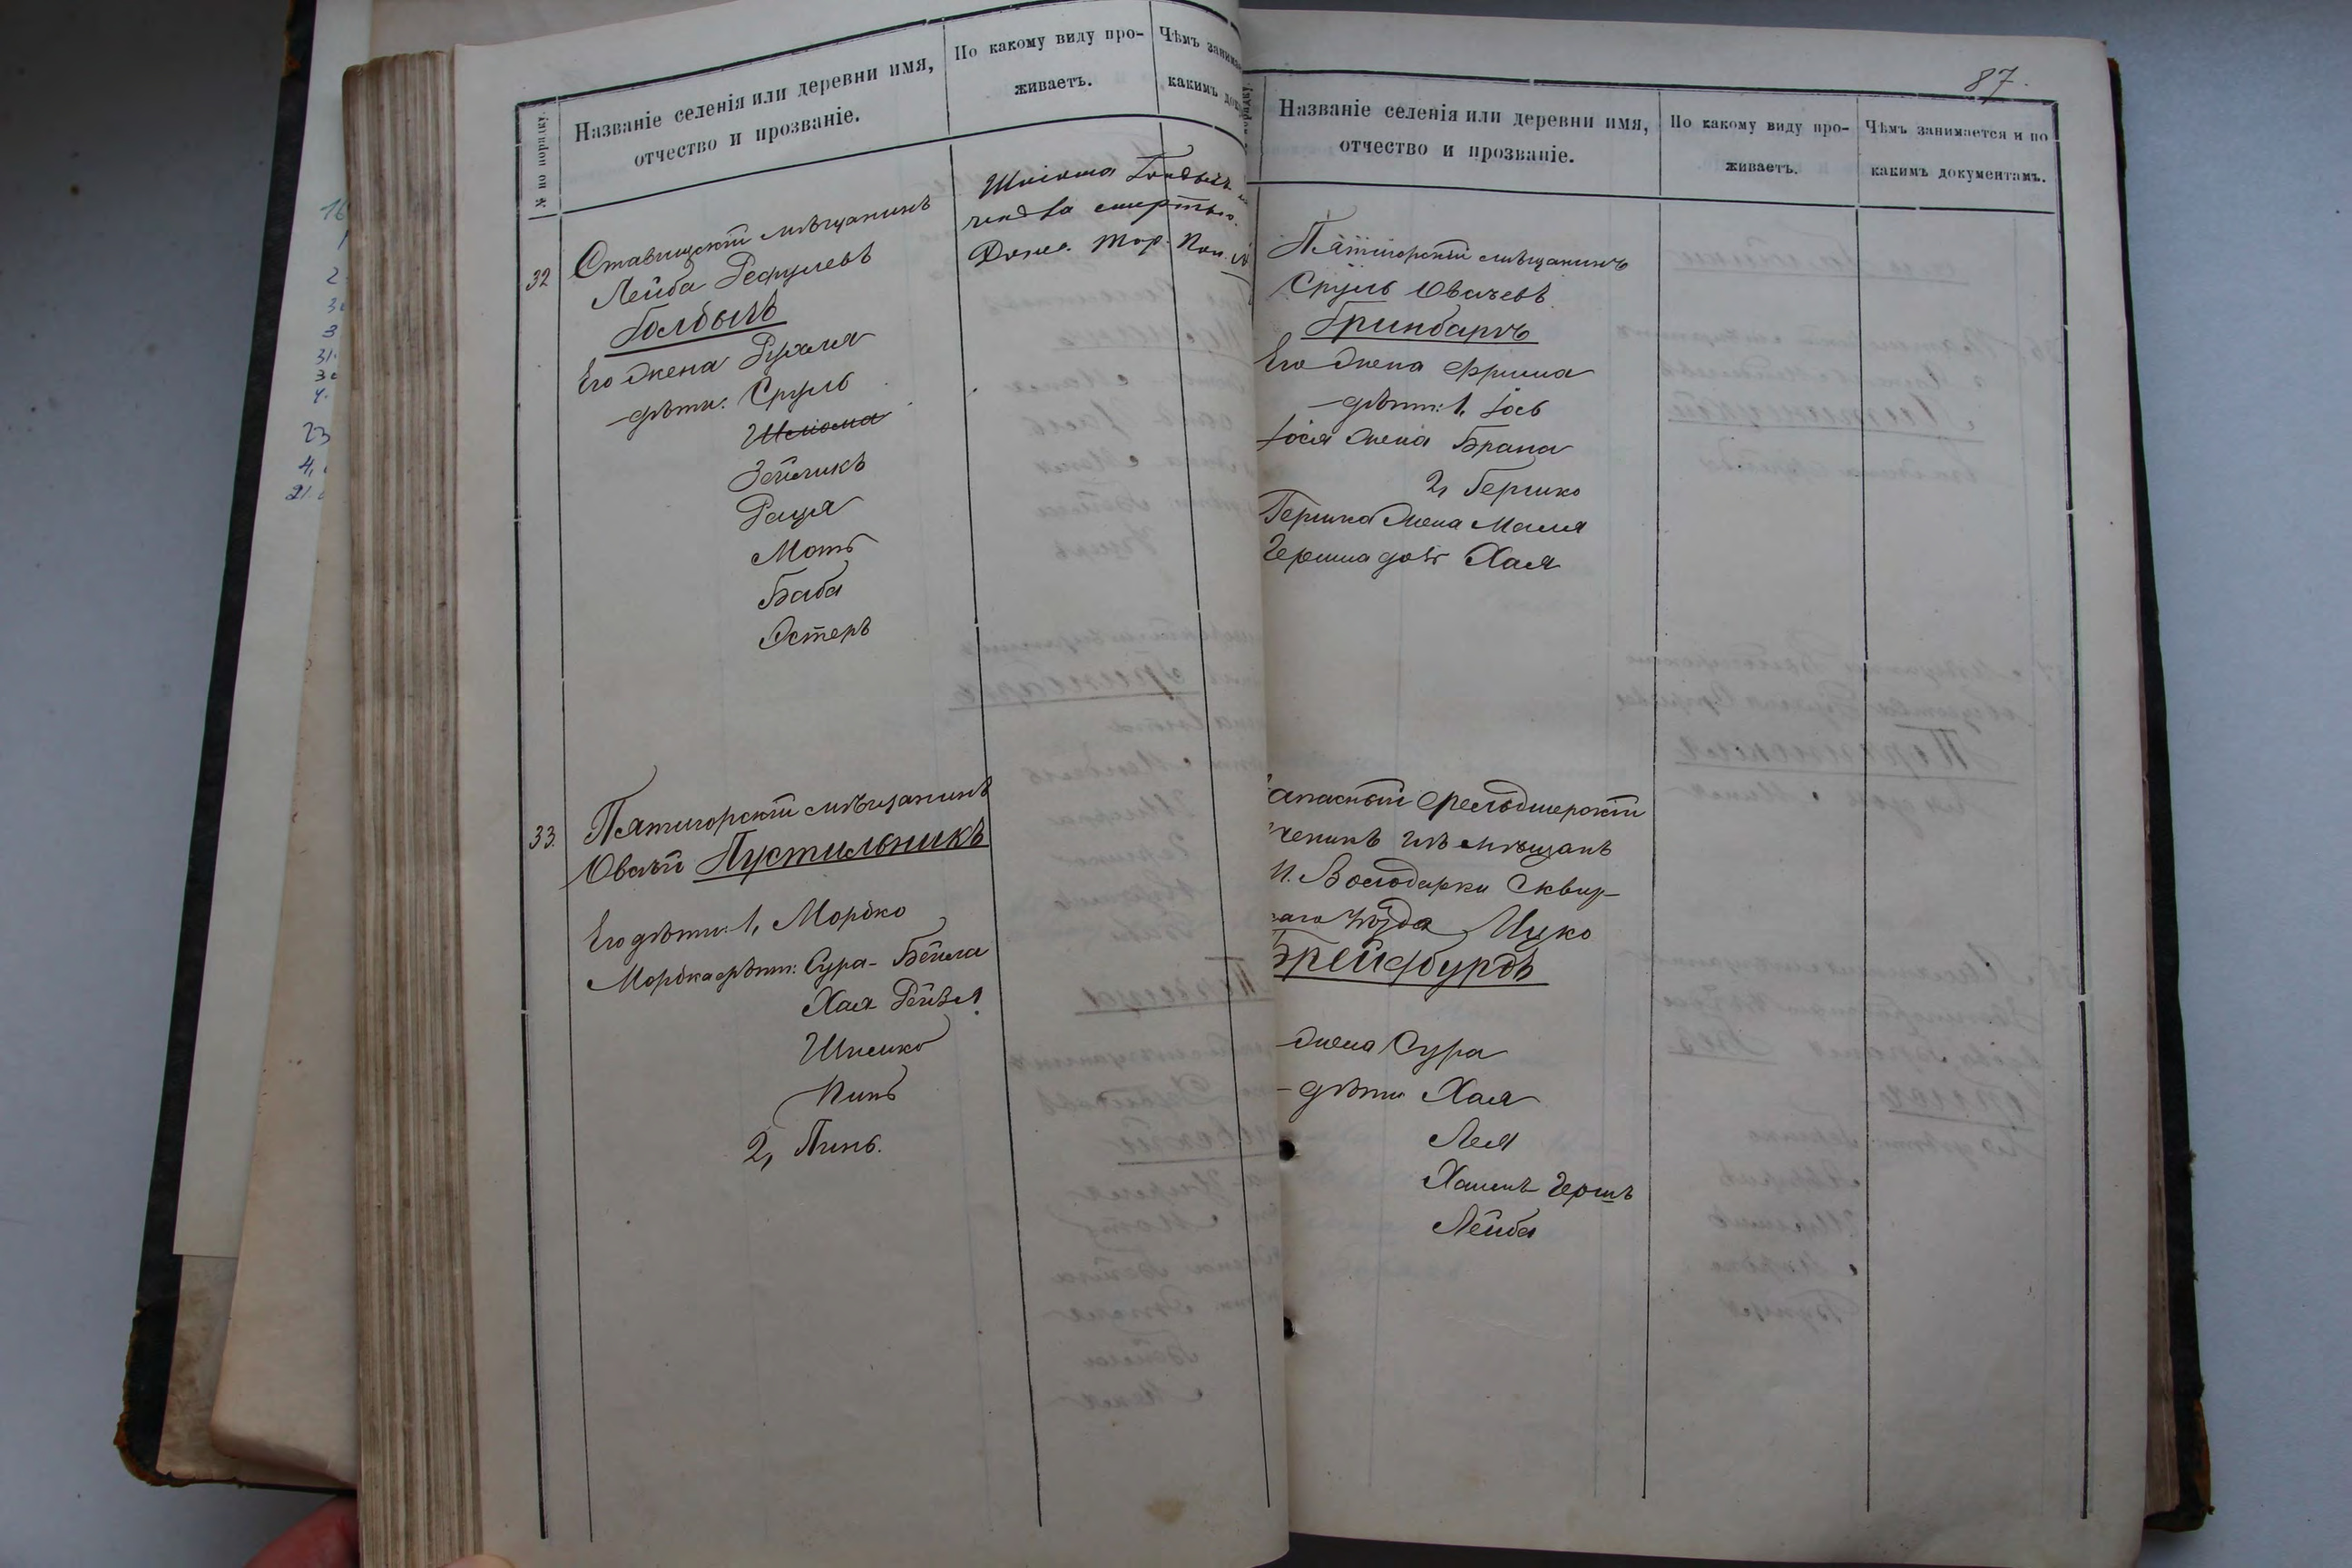 № по порядку.
Названіе селенія или деревни имя,
отчество и прозваніе.
По какому виду про-
живаетъ.
Чѣмъ
какимъ
32
Ставищскій мѣщанинъ
Лейба
Голдыль
Его жена Рухля
дѣти: Сруль
Шліома
Зейликъ
Рация
Моть
Баба
Эстеръ
Шліома
смертью
Донес.
33.
Пятигорскій мѣщанинъ
Овшій Пустильникъ
Его дѣти: 1, Мордко
Мордка дѣти: Сура-Бейла
Хая Рейзя
Шмилко
Пинь
2, Пинь.
87.
Названіе селенія или деревни имя,
отчество и прозваніе.
По какому виду про-
живаетъ.
Чѣмъ занимается и по
какимъ документамъ.
Пятигорскій мѣщанинъ
Сруль Овшіевъ
Гринбаргъ
Его жена Фрима
дѣти: 1, Іось
Іося жена Брана
2, Гершко
Гершка жена Маля
Гершка дочь Хая
апасный фельдшерскій
ченикъ изъ мѣщанъ
М. Володарки Сквир-
каго уѣзда Ицко
жена Сура
дѣти Хая
Лея
Хаимъ Гершъ
Лейба